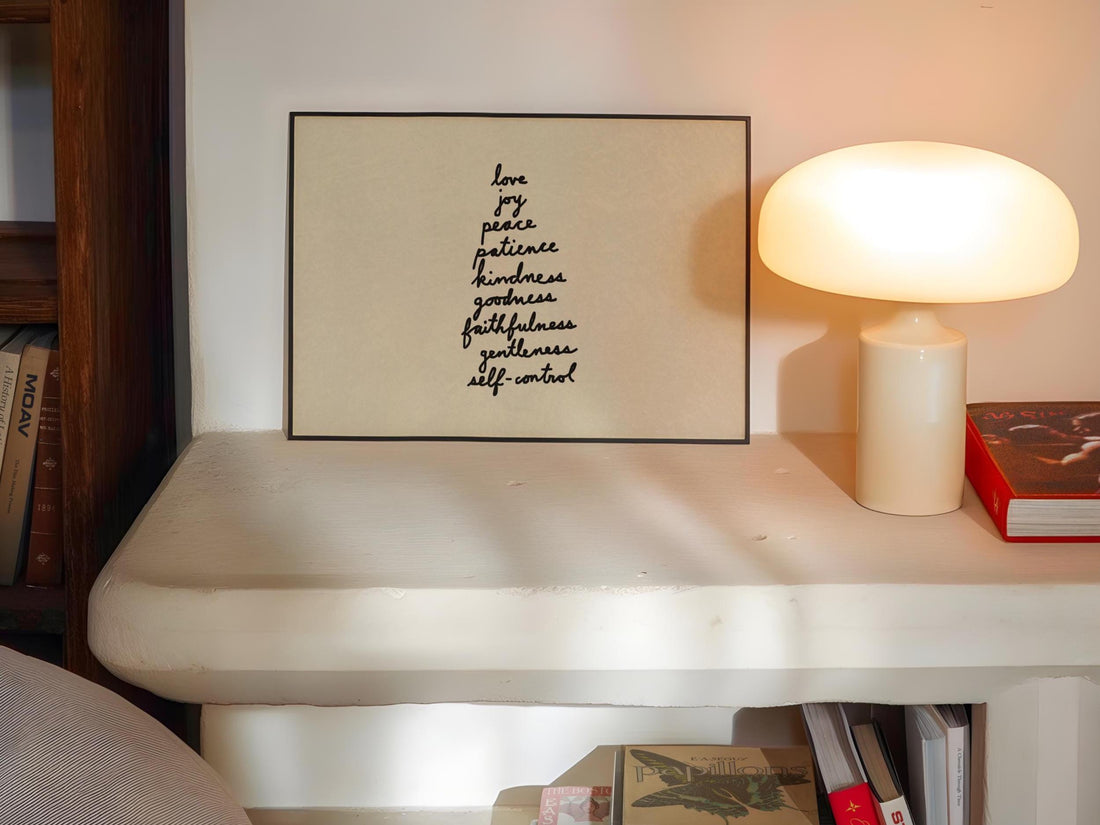 love
joy
peace
patience
kindness
goodness
faithfulness
gentleness
self-control
MOAV
1894
E.A. SEGUY
papillons
THE BOSTON
A Chronicle Through Time